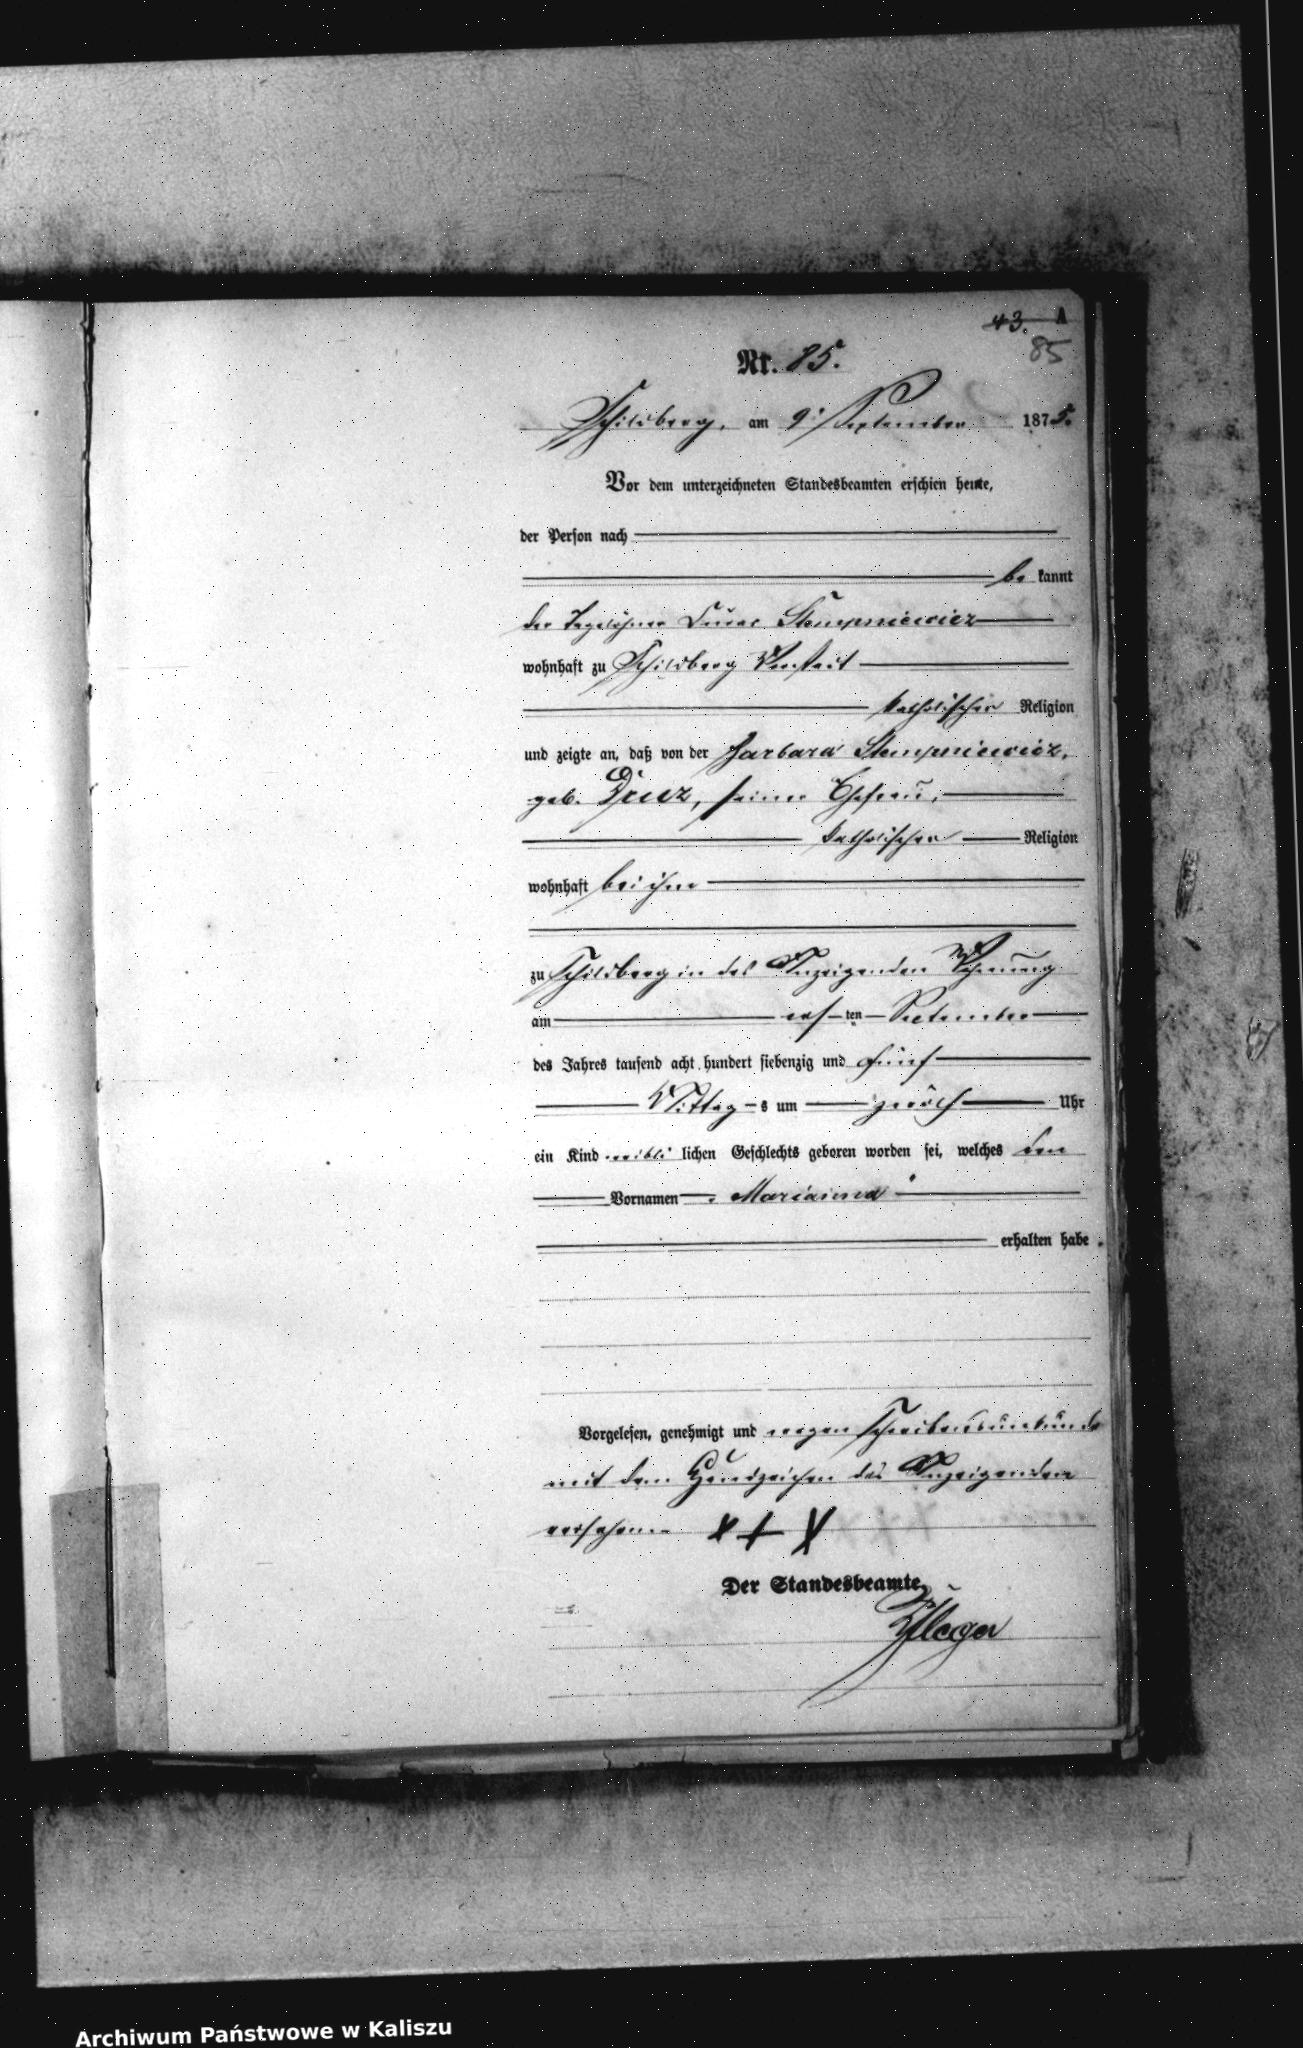 43. A
85
Nr. 85.
Schildberg, am 9. September 1875.
Vor dem unterzeichneten Standesbeamten erschien heute,
der Person nach
be kannt
der Tagelöhner Stempniewicz
wohnhaft zu Schildberg Vorstadt
katholischer Religion
und zeigte an, daß von der Barbara Stempniewicz,
geb. seiner Ehefrau,
katholischer Religion
wohnhaft bei ihm
zu Schildberg in des Anzeigenden Wohnung
am ersten September
des Jahres tausend acht hundert siebenzig und fünf
Mittags um zwölf Uhr
ein Kind weiblichen Geschlechts geboren worden sei, welches den
Vornamen Marianna
erhalten habe.
Vorgelesen, genehmigt und wegen Schreibensunkunde
mit dem Handzeichen des Anzeigenden
versehen. x + X
Der Standesbeamte.
Archiwum Państwowe w Kaliszu